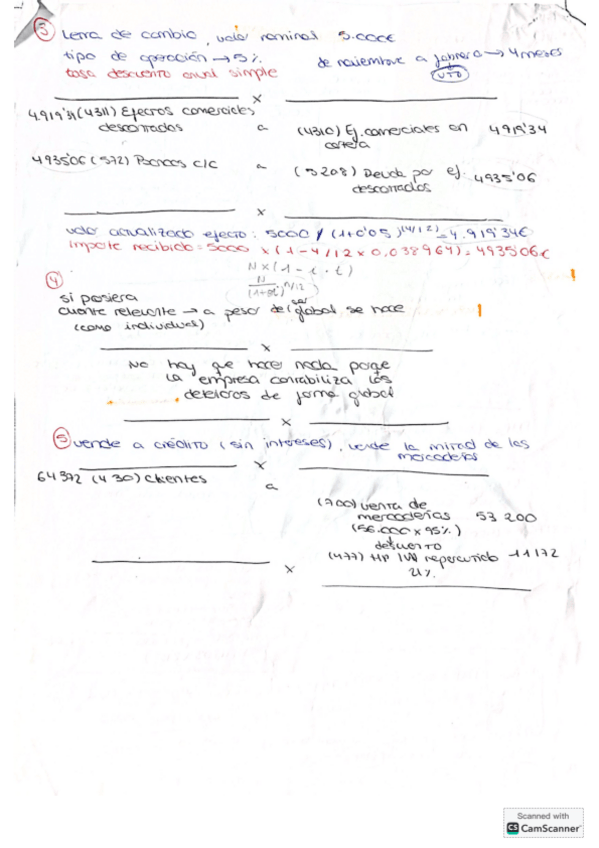 ③ Letra de cambio, valor nominal 5.000€
tipo de operación → 5%
de noviembre a febrero → 4 meses
tasa descuento anual simple
VTO
x
4919'34 (4311) Efectos comerciales
descontados a (4310) Ef. comerciales en 4919'34
cartera
4935'06 (572) Bancos c/c a (5208) Deuda por ef. 4935'06
descontados
x
valor actualizado efecto: 5000 / (1+0'05)^(4/12) = 4.919'34€
Importe recibido = 5000 x (1 - 4/12 x 0,038964) = 4935'06€
N x (1 - i · t)
N
(1+st)^n/12
④
si pusiera
cuente relevante → a pesar de ser global se hace
(como individual)
x
No hay que hacer nada porque
la empresa contabiliza los
deterioros de forma global
x
⑤ vende a crédito (sin intereses), vende la mitad de las
mercaderías
x
64372 (430) Clientes
a
(700) venta de
mercaderías 53 200
(56.000 x 95%)
descuento
(477) HP IVA repercutido 11172
21%
x
Scanned with
CS CamScanner